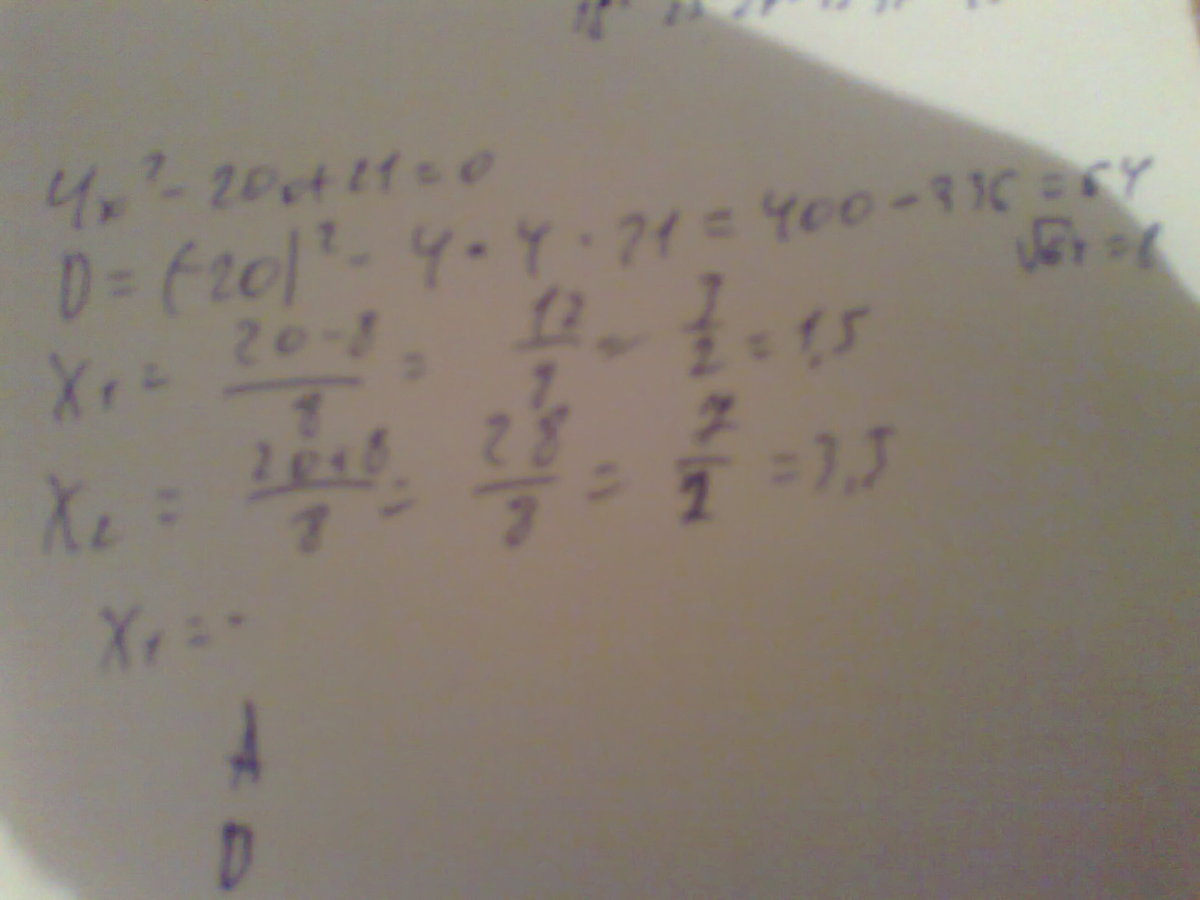 4x² - 20x + 21 = 0
D = (-20)² - 4 · 4 · 21 = 400 - 336 = 64
√64 = 8
X₁ = (20 - 8)/8 = 12/8 = 3/2 = 1,5
X₂ = (20 + 8)/8 = 28/8 = 7/2 = 3,5
X₁ = -
A
D